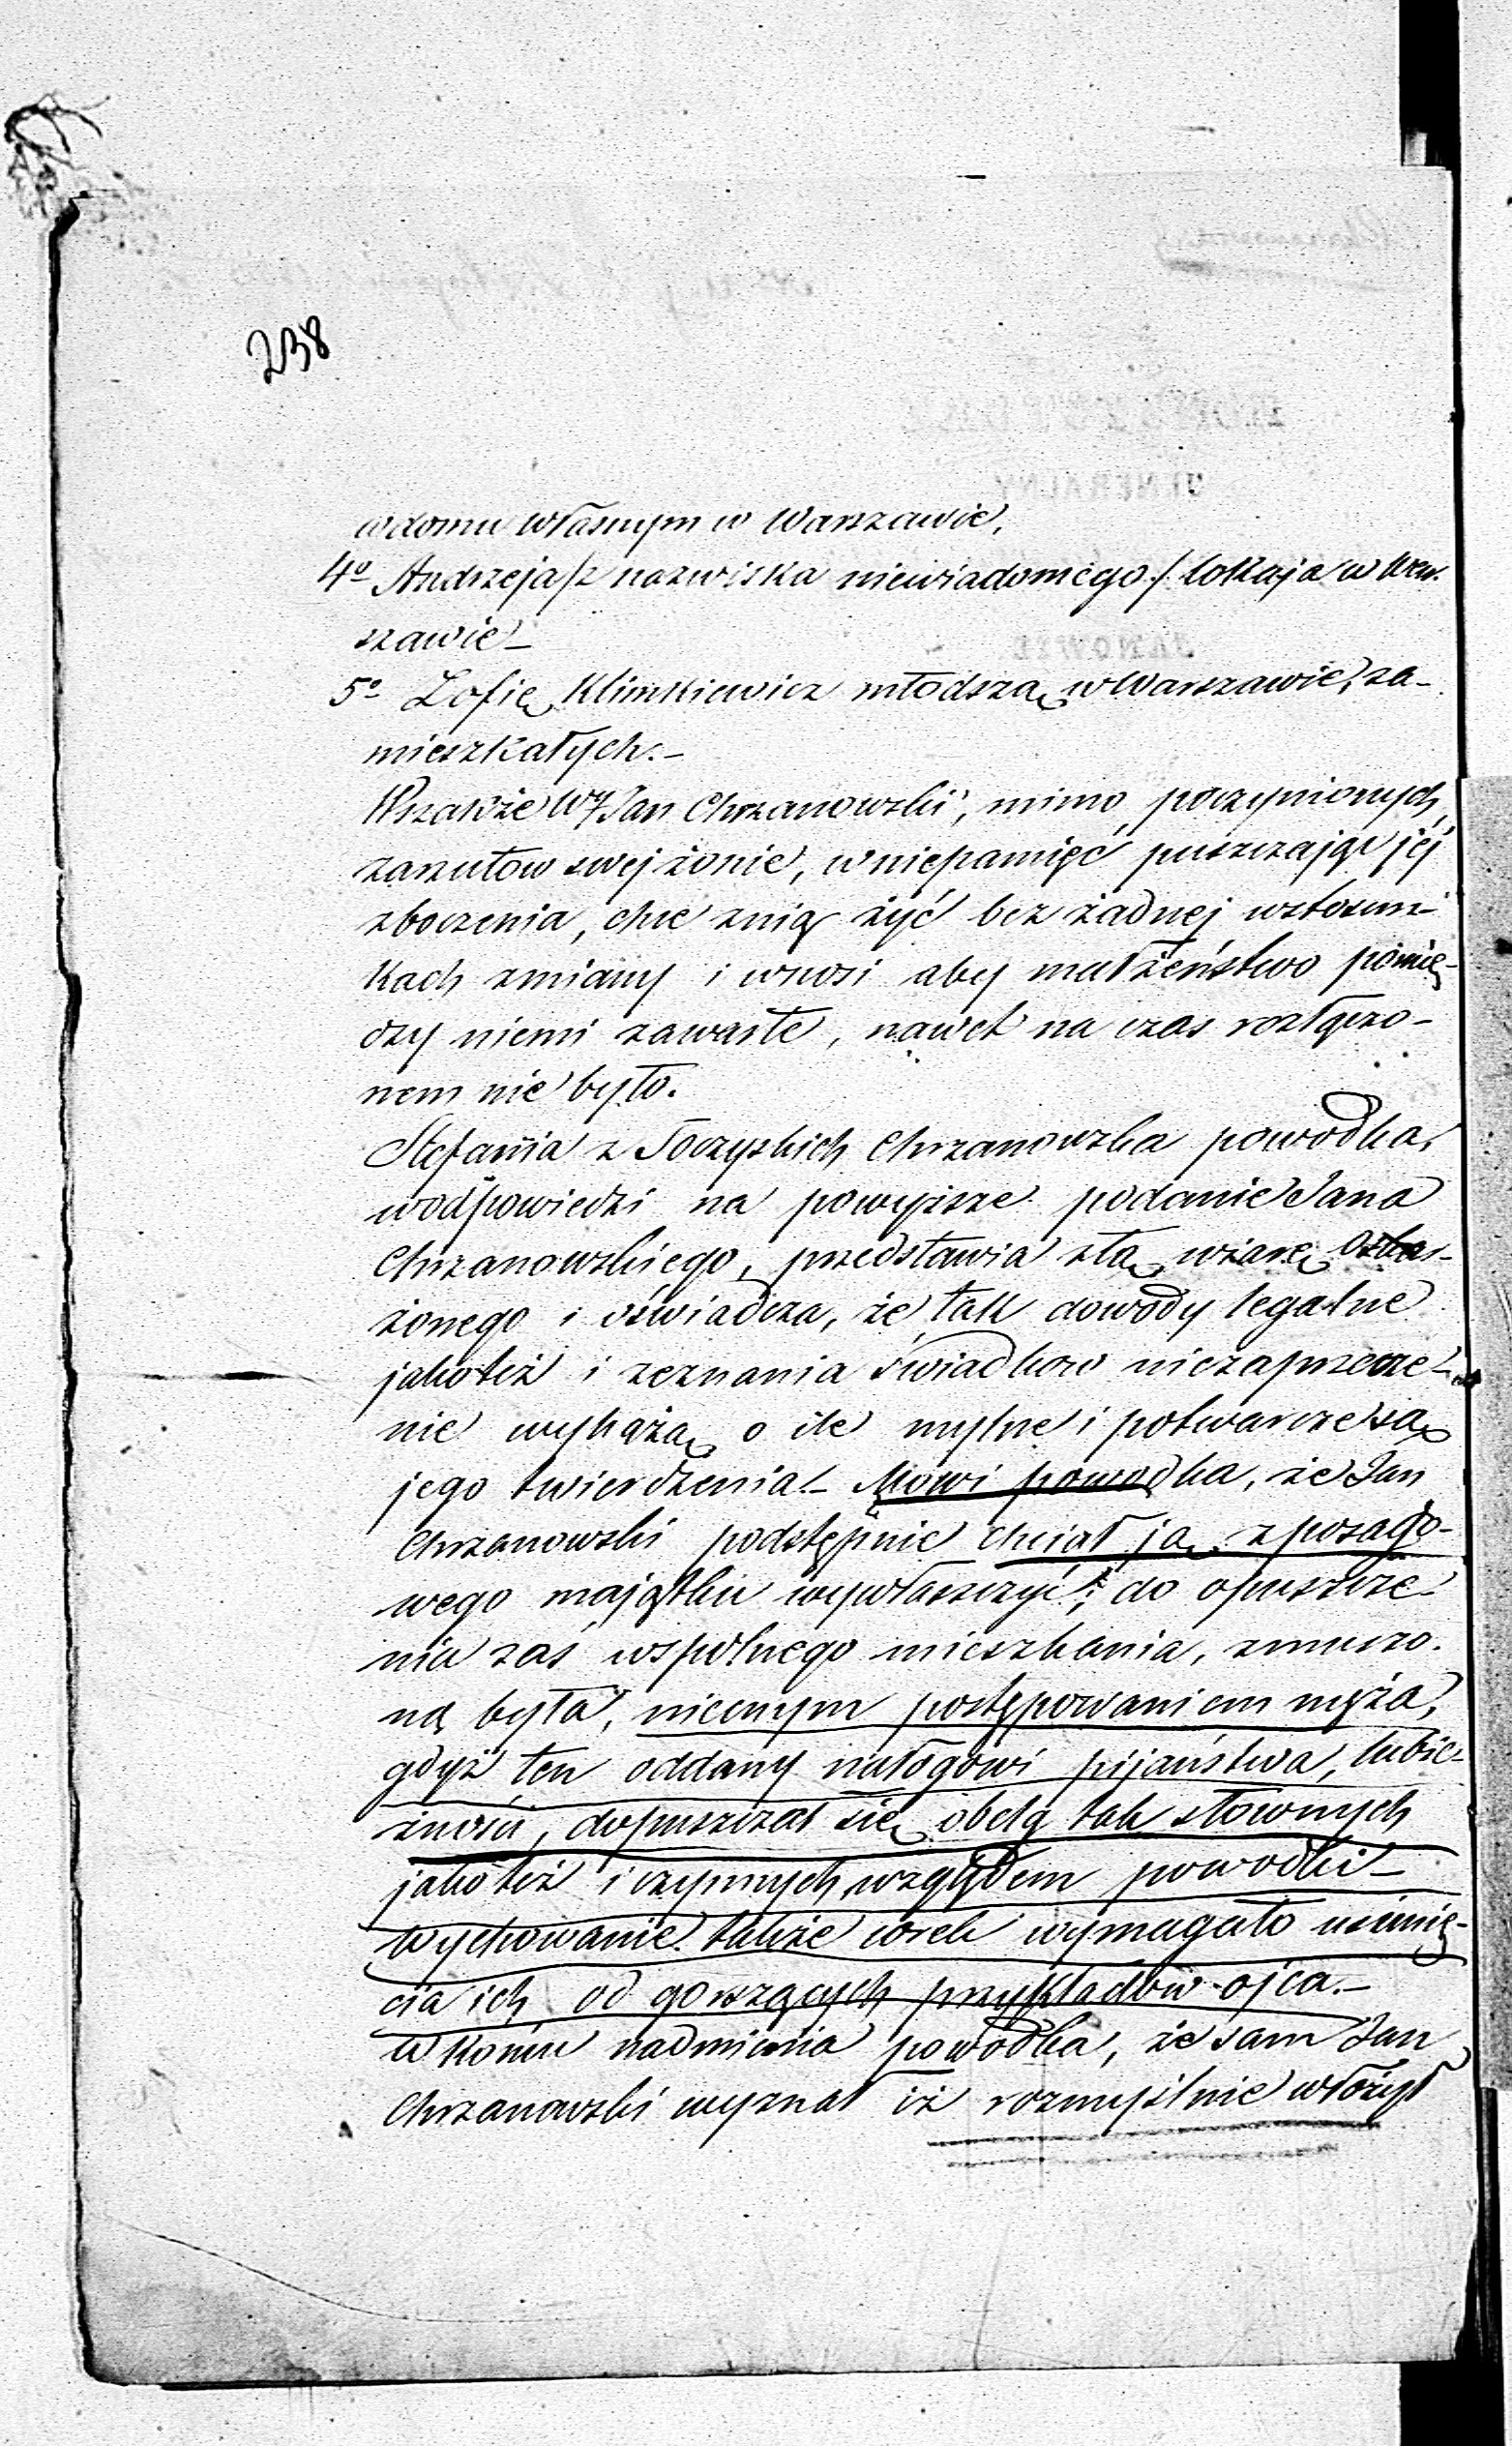 238
w domu własnym w Warszawie,
4º Andrzeja /z nazwiska niewiadomego/ lokaja w War-
szawie –
5º Zofię Klimkiewicz młodszą w Warszawie, za-
mieszkałych. –
Wszakże WJ Jan Chrzanowski, mimo poczynionych
zarzutów swej żonie, w niepamięć puszczając jéj
zboczenia, chce z nią żyć bez żadnej w stosun-
kach zmiany i wnosi aby małżeństwo pomię-
dzy niemi zawarte, nawet na czas rozłączo-
nem nie było.
Stefania z Toczyskich Chrzanowska powódka,
w odpowiedzi na powyższe podanie Jana
Chrzanowskiego, przedstawia złą wiarę oskar-
żonego i oświadcza, że tak dowody legalne
jakoteż i zeznania świadków niezaprzecze-
nie wykażą o ile mylne i potwarcze są
jego twierdzenia. – Mówi powódka, że Jan
Chrzanowski podstępnie chciał ją z posago-
wego majątku wywłaszczyć; do opuszcze-
nia zaś wspólnego mieszkania, zmuszo-
ną była, niecnym postępowaniem męża,
gdyż ten oddany nałogowi pijaństwa, lubie-
żności, dopuszczał się obelg tak słownych
jakoteż i czynnych względem powódki –
wychowanie także córek wymagało usunię-
cia ich od gorszących przykładów ojca. –
W końcu nadmienia powódka, że sam Jan
Chrzanowski wyznał iż rozmyślnie włożył